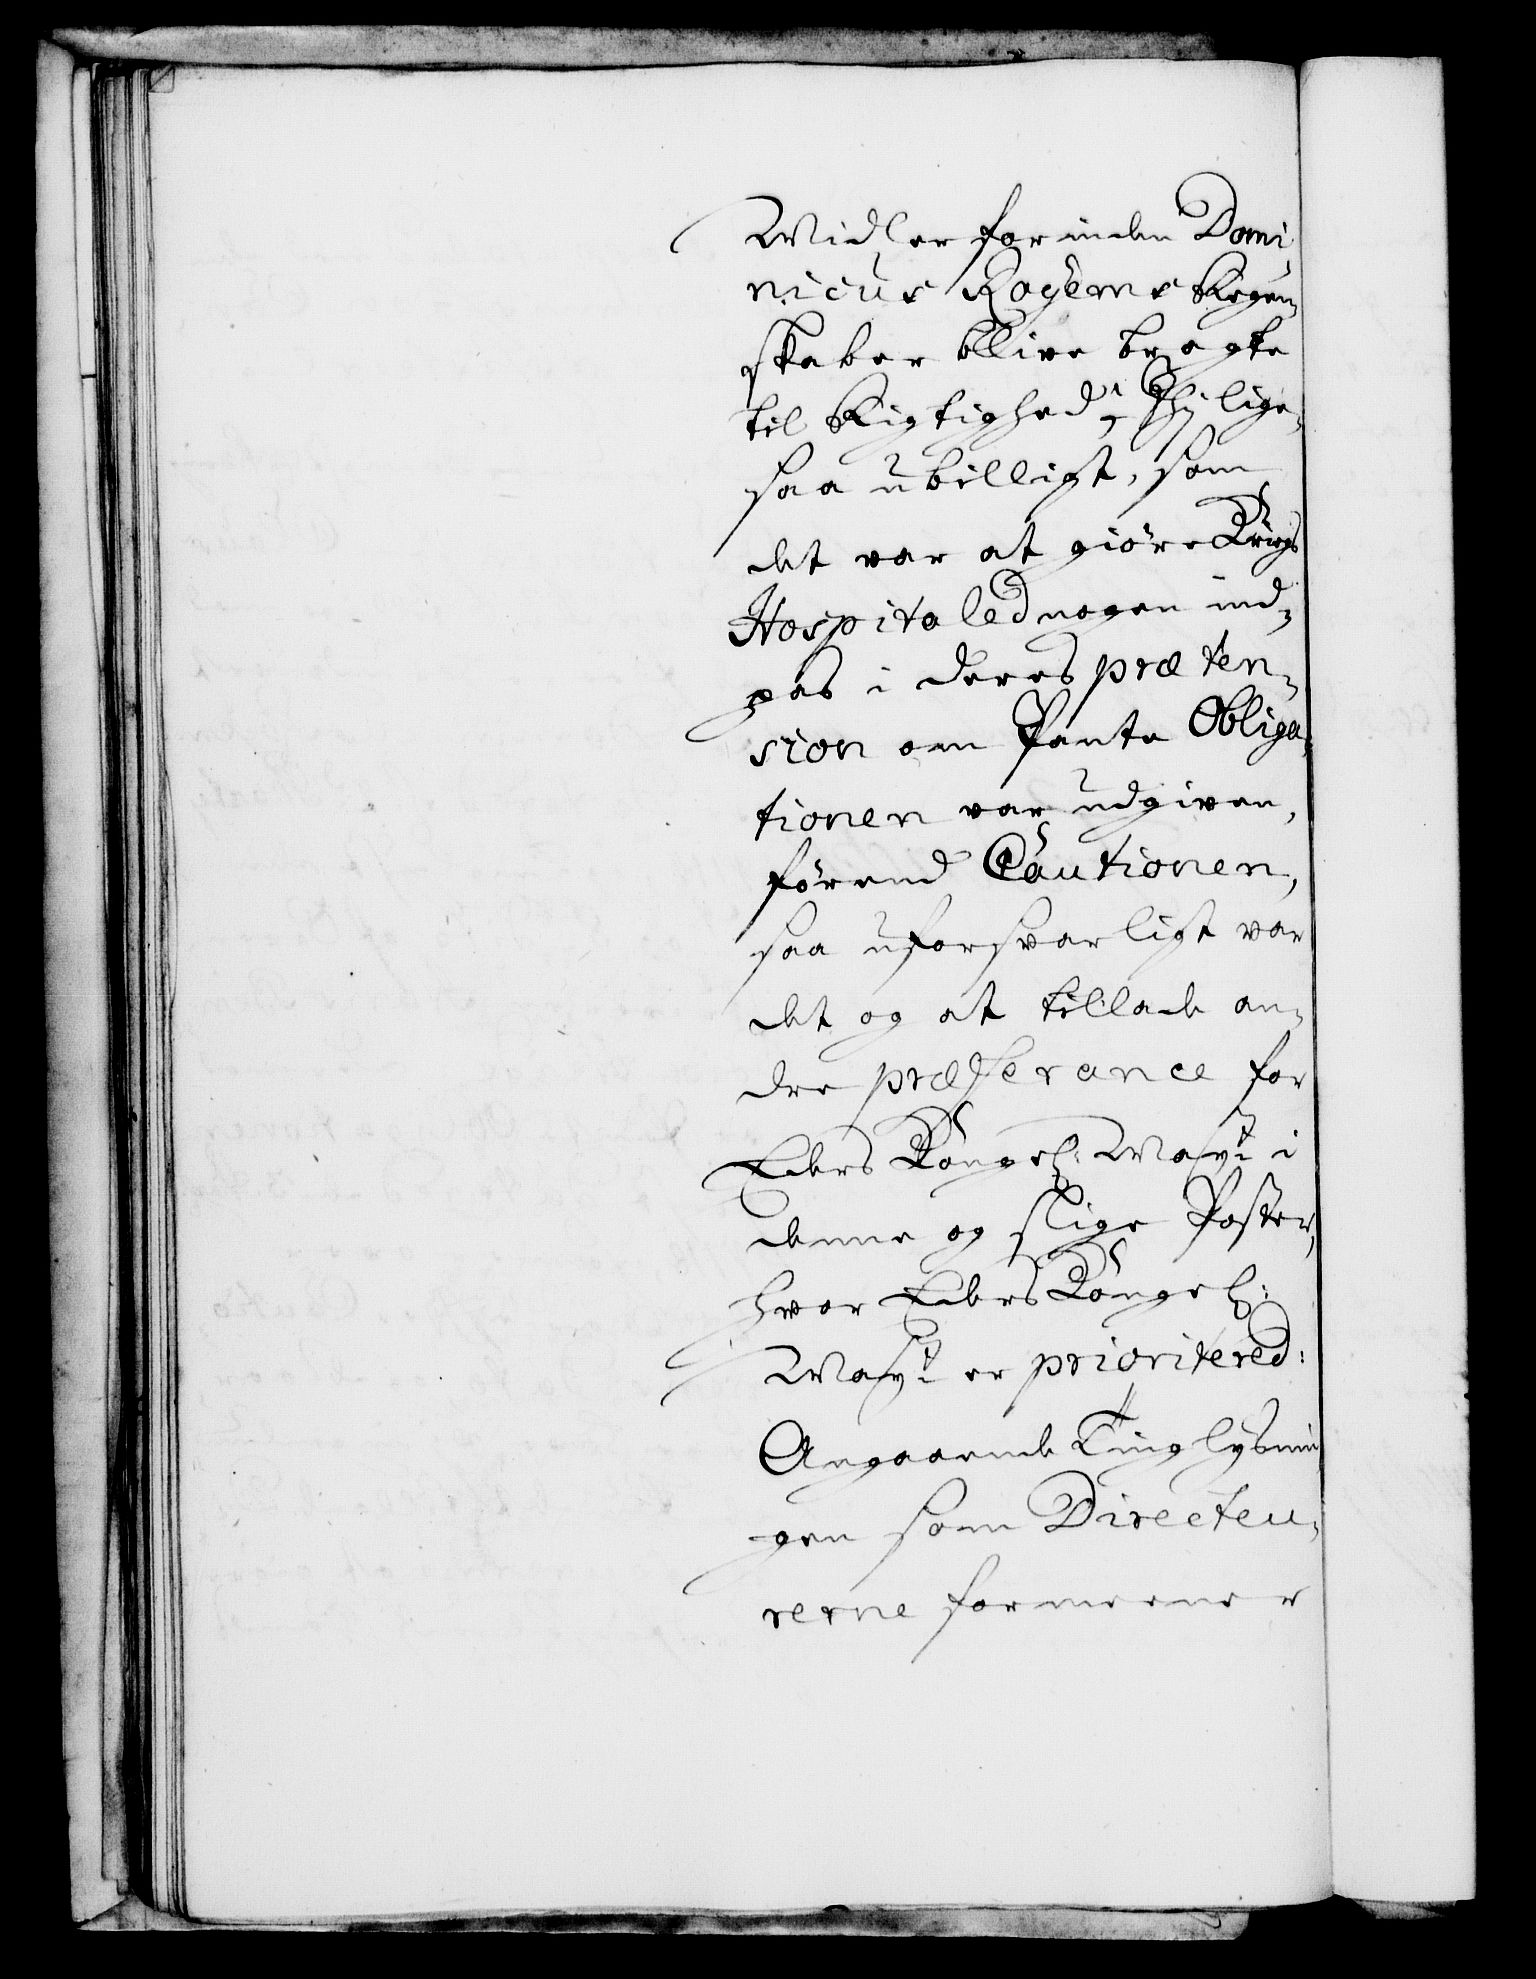 Midler forinden Domi¬
nicus Rogems Regen¬
skaber blive bragte
til Rigtighed; Thi lige¬
saa ubilligt, som
det var at giöre Krigs
Hospitaled nogen ind¬
pas i deres præten¬
sion om Pante Obliga¬
tionen var udgiven,
förend Cautionen,
saa uforsvarligt var
det og at tillade an¬
dre præferance for
Eders Kongel: Mayt i
denne og slige Poster,
hvor Eders Kongel:
Mayt er prioritered:
Angaaende Tinglysnin
gen som Directeu¬
rerne formeener